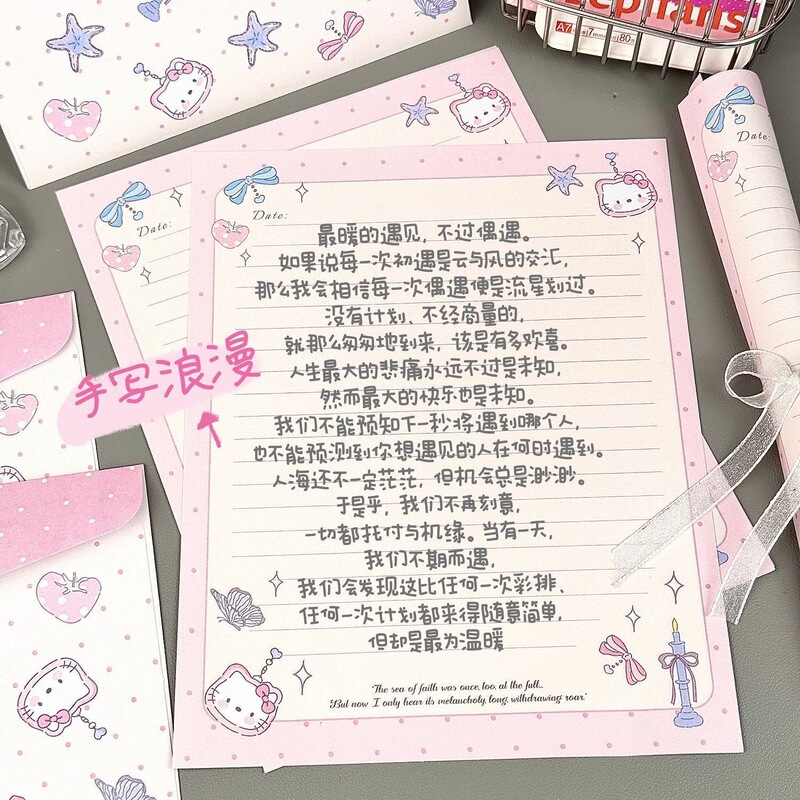 A7
7mm
80
Date:
Date:
Date:
最暖的遇见，不过偶遇。
如果说每一次初遇是云与风的交汇，
那么我会相信每一次偶遇便是流星划过。
没有计划、不经商量的，
就那么匆匆地到来，该是有多欢喜。
人生最大的悲痛永远不过是未知，
然而最大的快乐也是未知。
我们不能预知下一秒将遇到哪个人，
也不能预测到你想遇见的人在何时遇到。
人海还不一定茫茫，但机会总是渺渺。
于是乎，我们不再刻意，
一切都托付与机缘。当有一天，
我们不期而遇，
我们会发现这比任何一次彩排、
任何一次计划都来得随意简单，
但却是最为温暖
手写浪漫
The sea of faith was once, too, at the full...
But now I only hear its melancholy, long, withdrawing roar.'